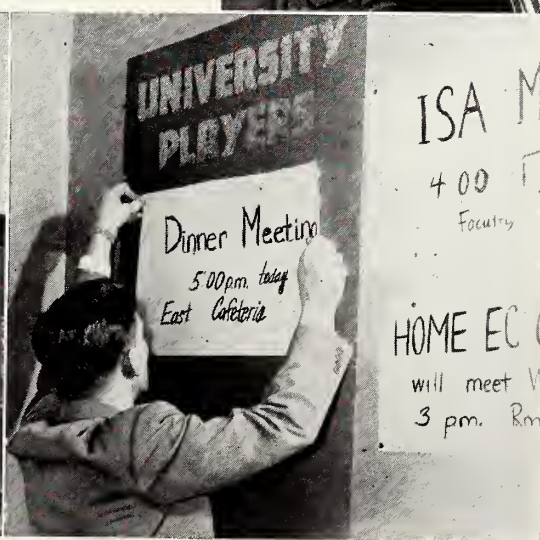 UNIVERSITY
PLAYERS
Dinner Meeting
5:00 p.m. today
East Cafeteria
ISA
4 00
Faculty
HOME EC
will meet
3 pm. Rm